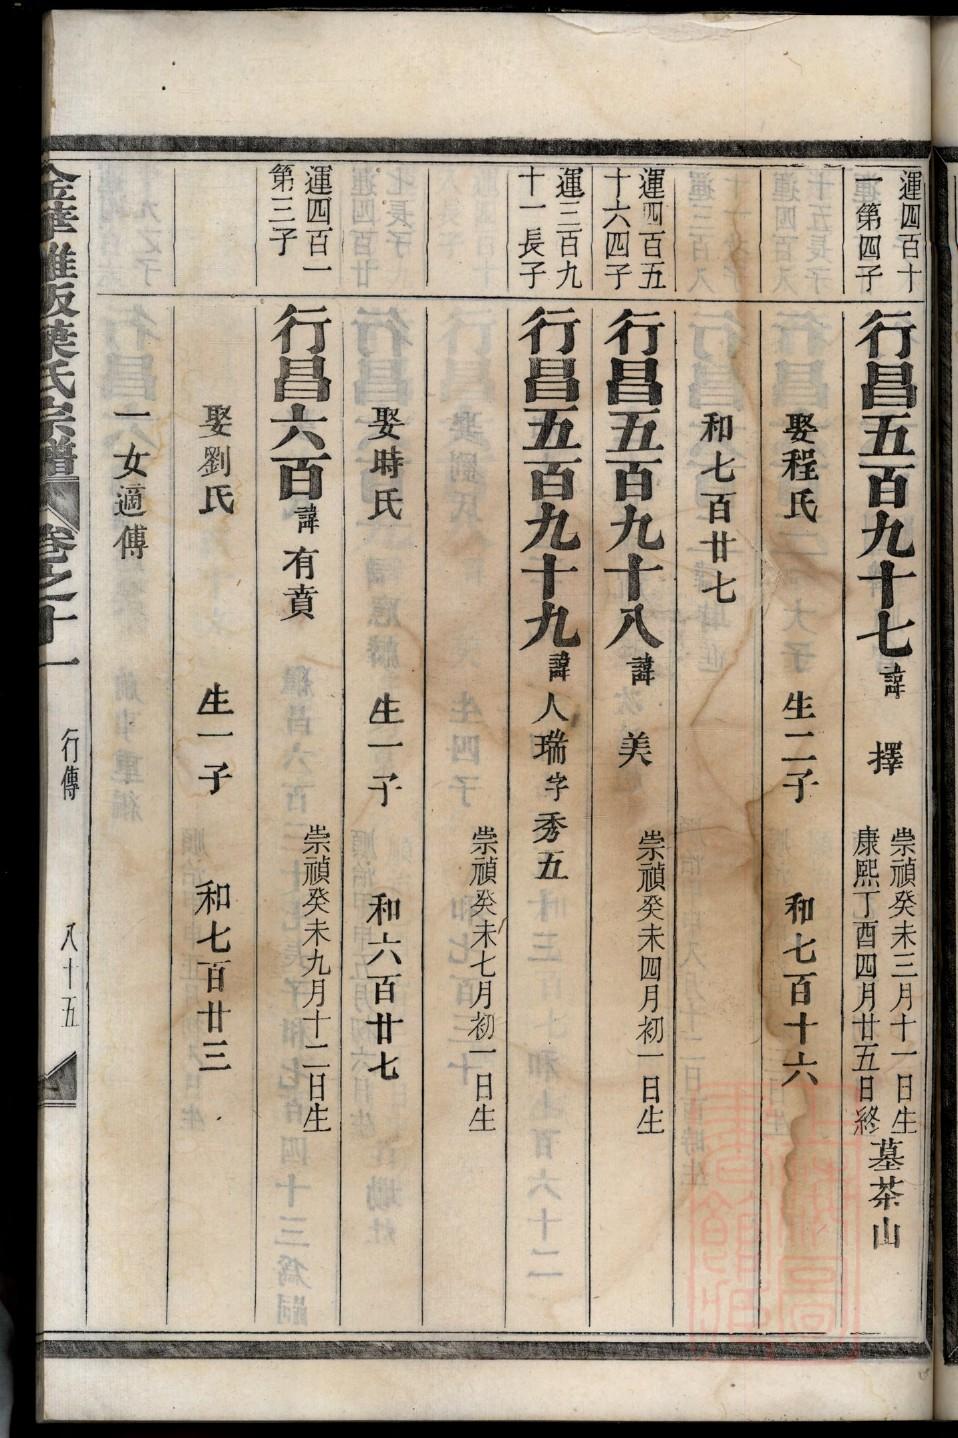 運四百十
一第四子
行昌五百九十七 諱 擇 崇禎癸未三月十一日生
康熙丁酉四月廿五日終 墓茶山
娶程氏 生二子 和七百十六
和七百廿七
運四百五
十六四子
行昌五百九十八 諱 美 崇禎癸未四月初一日生
運三百九
十一長子
行昌五百九十九 諱 人瑞 字 秀五
崇禎癸未七月初一日生
娶時氏 生一子 和六百廿七
運四百一
第三子
行昌六百 諱 有賁 崇禎癸未九月十二日生
娶劉氏 生一子 和七百廿三
一女適傅
金華 葉氏宗譜 卷之十一 行傳 八十五